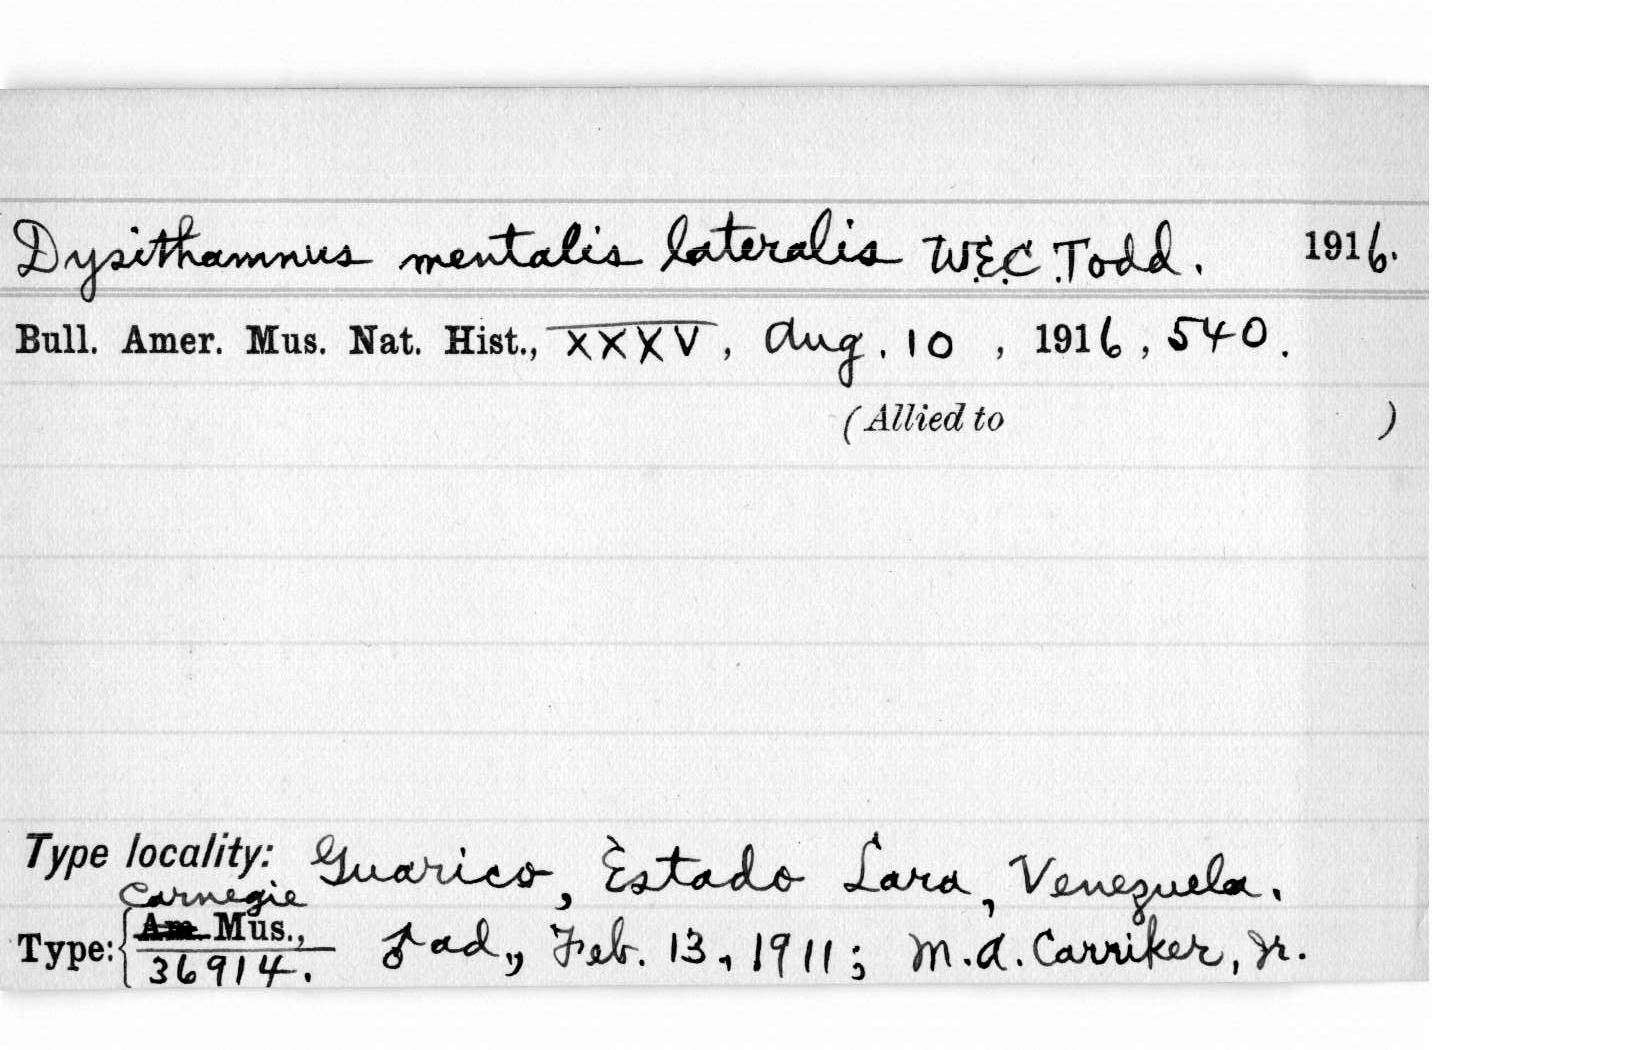 Dysithamnus mentalis lateralis W.E.C. Todd. 1916.
Bull. Amer. Mus. Nat. Hist., XXXV, Aug. 10, 1916, 540.
(Allied to )
Type locality: Guarico, Estado Lara, Venezuela.
Carnegie
Type: Am Mus., ♂ ad., Feb. 13, 1911; M.A. Carriker, Jr.
36914.